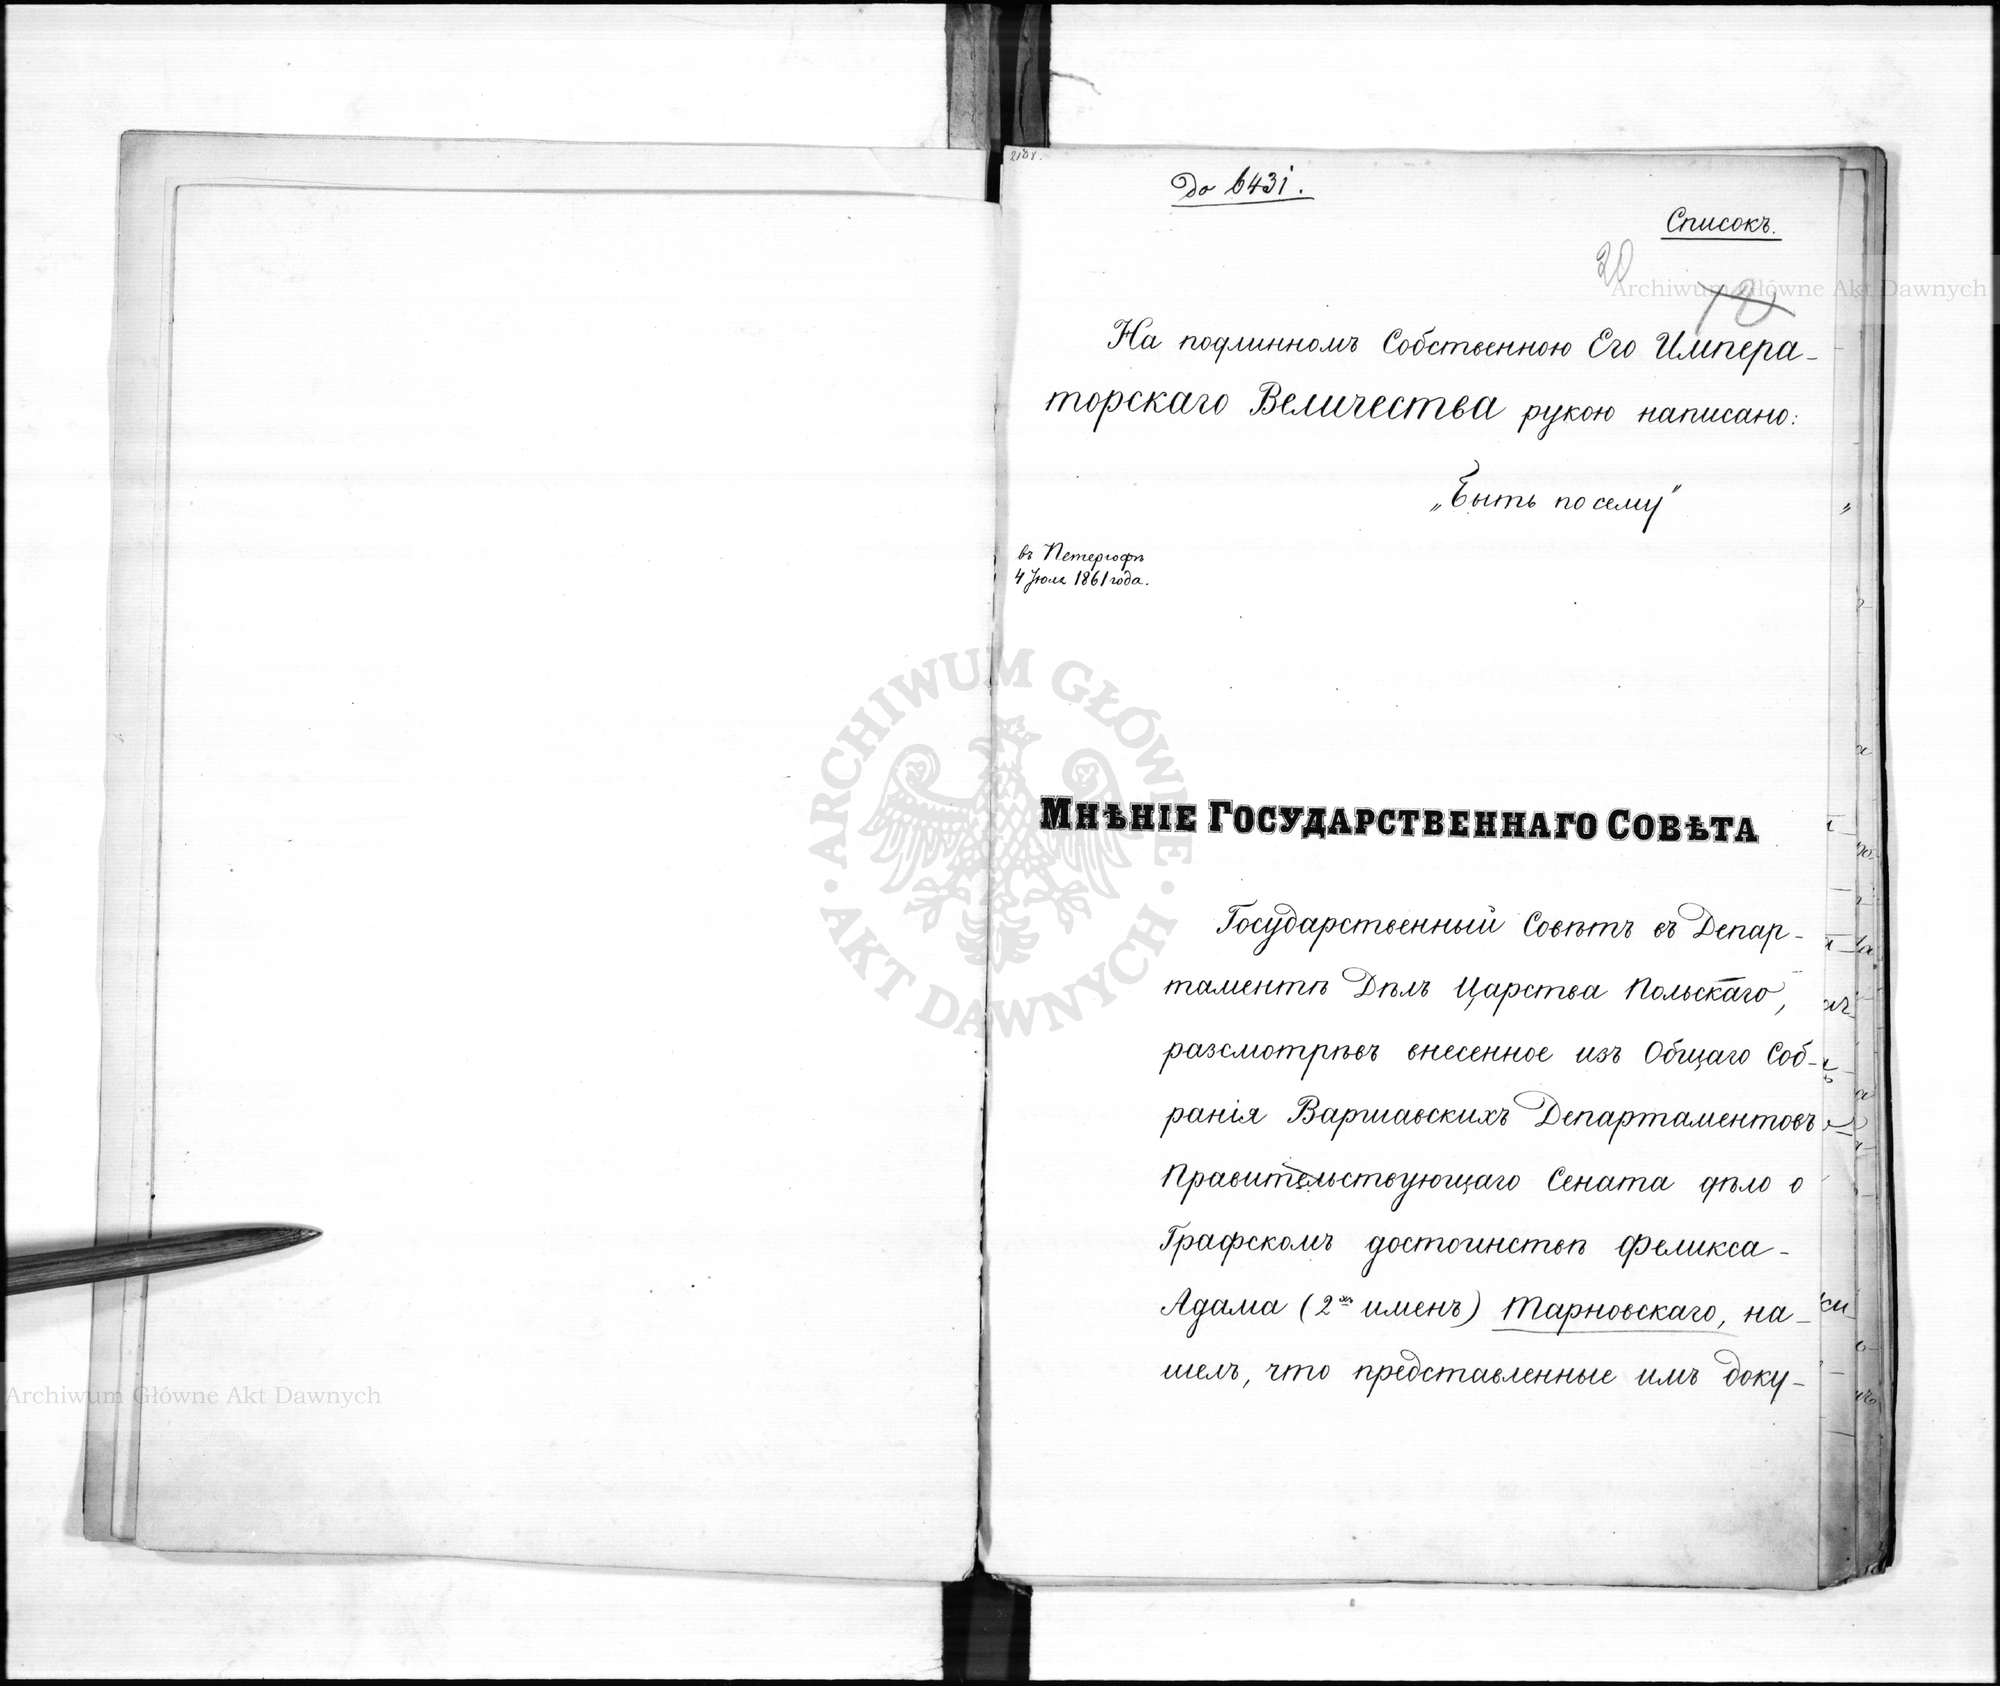 2188.
До 6431.
Списокъ.
20
На подлинномъ Собственною Его Импера-
торскаго Величества рукою написано:
„Быть по сему"
въ Петергофѣ
4 Іюля 1861 года.
МНѢНІЕ ГОСУДАРСТВЕННАГО СОВѢТА
Государственный Совѣтъ въ Депар-
таментѣ Дѣлъ Царства Польскаго,
разсмотрѣвъ внесенное изъ Общаго Соб-
ранія Варшавскихъ Департаментовъ
Правительствующаго Сената дѣло о
Графскомъ достоинствѣ Феликса-
Адама (2хъ именъ) Тарновскаго, на-
шелъ, что представленные имъ доку-
Archiwum Główne Akt Dawnych
Archiwum Główne Akt Dawnych
ARCHIWUM GŁÓWNE · AKT DAWNYCH ·